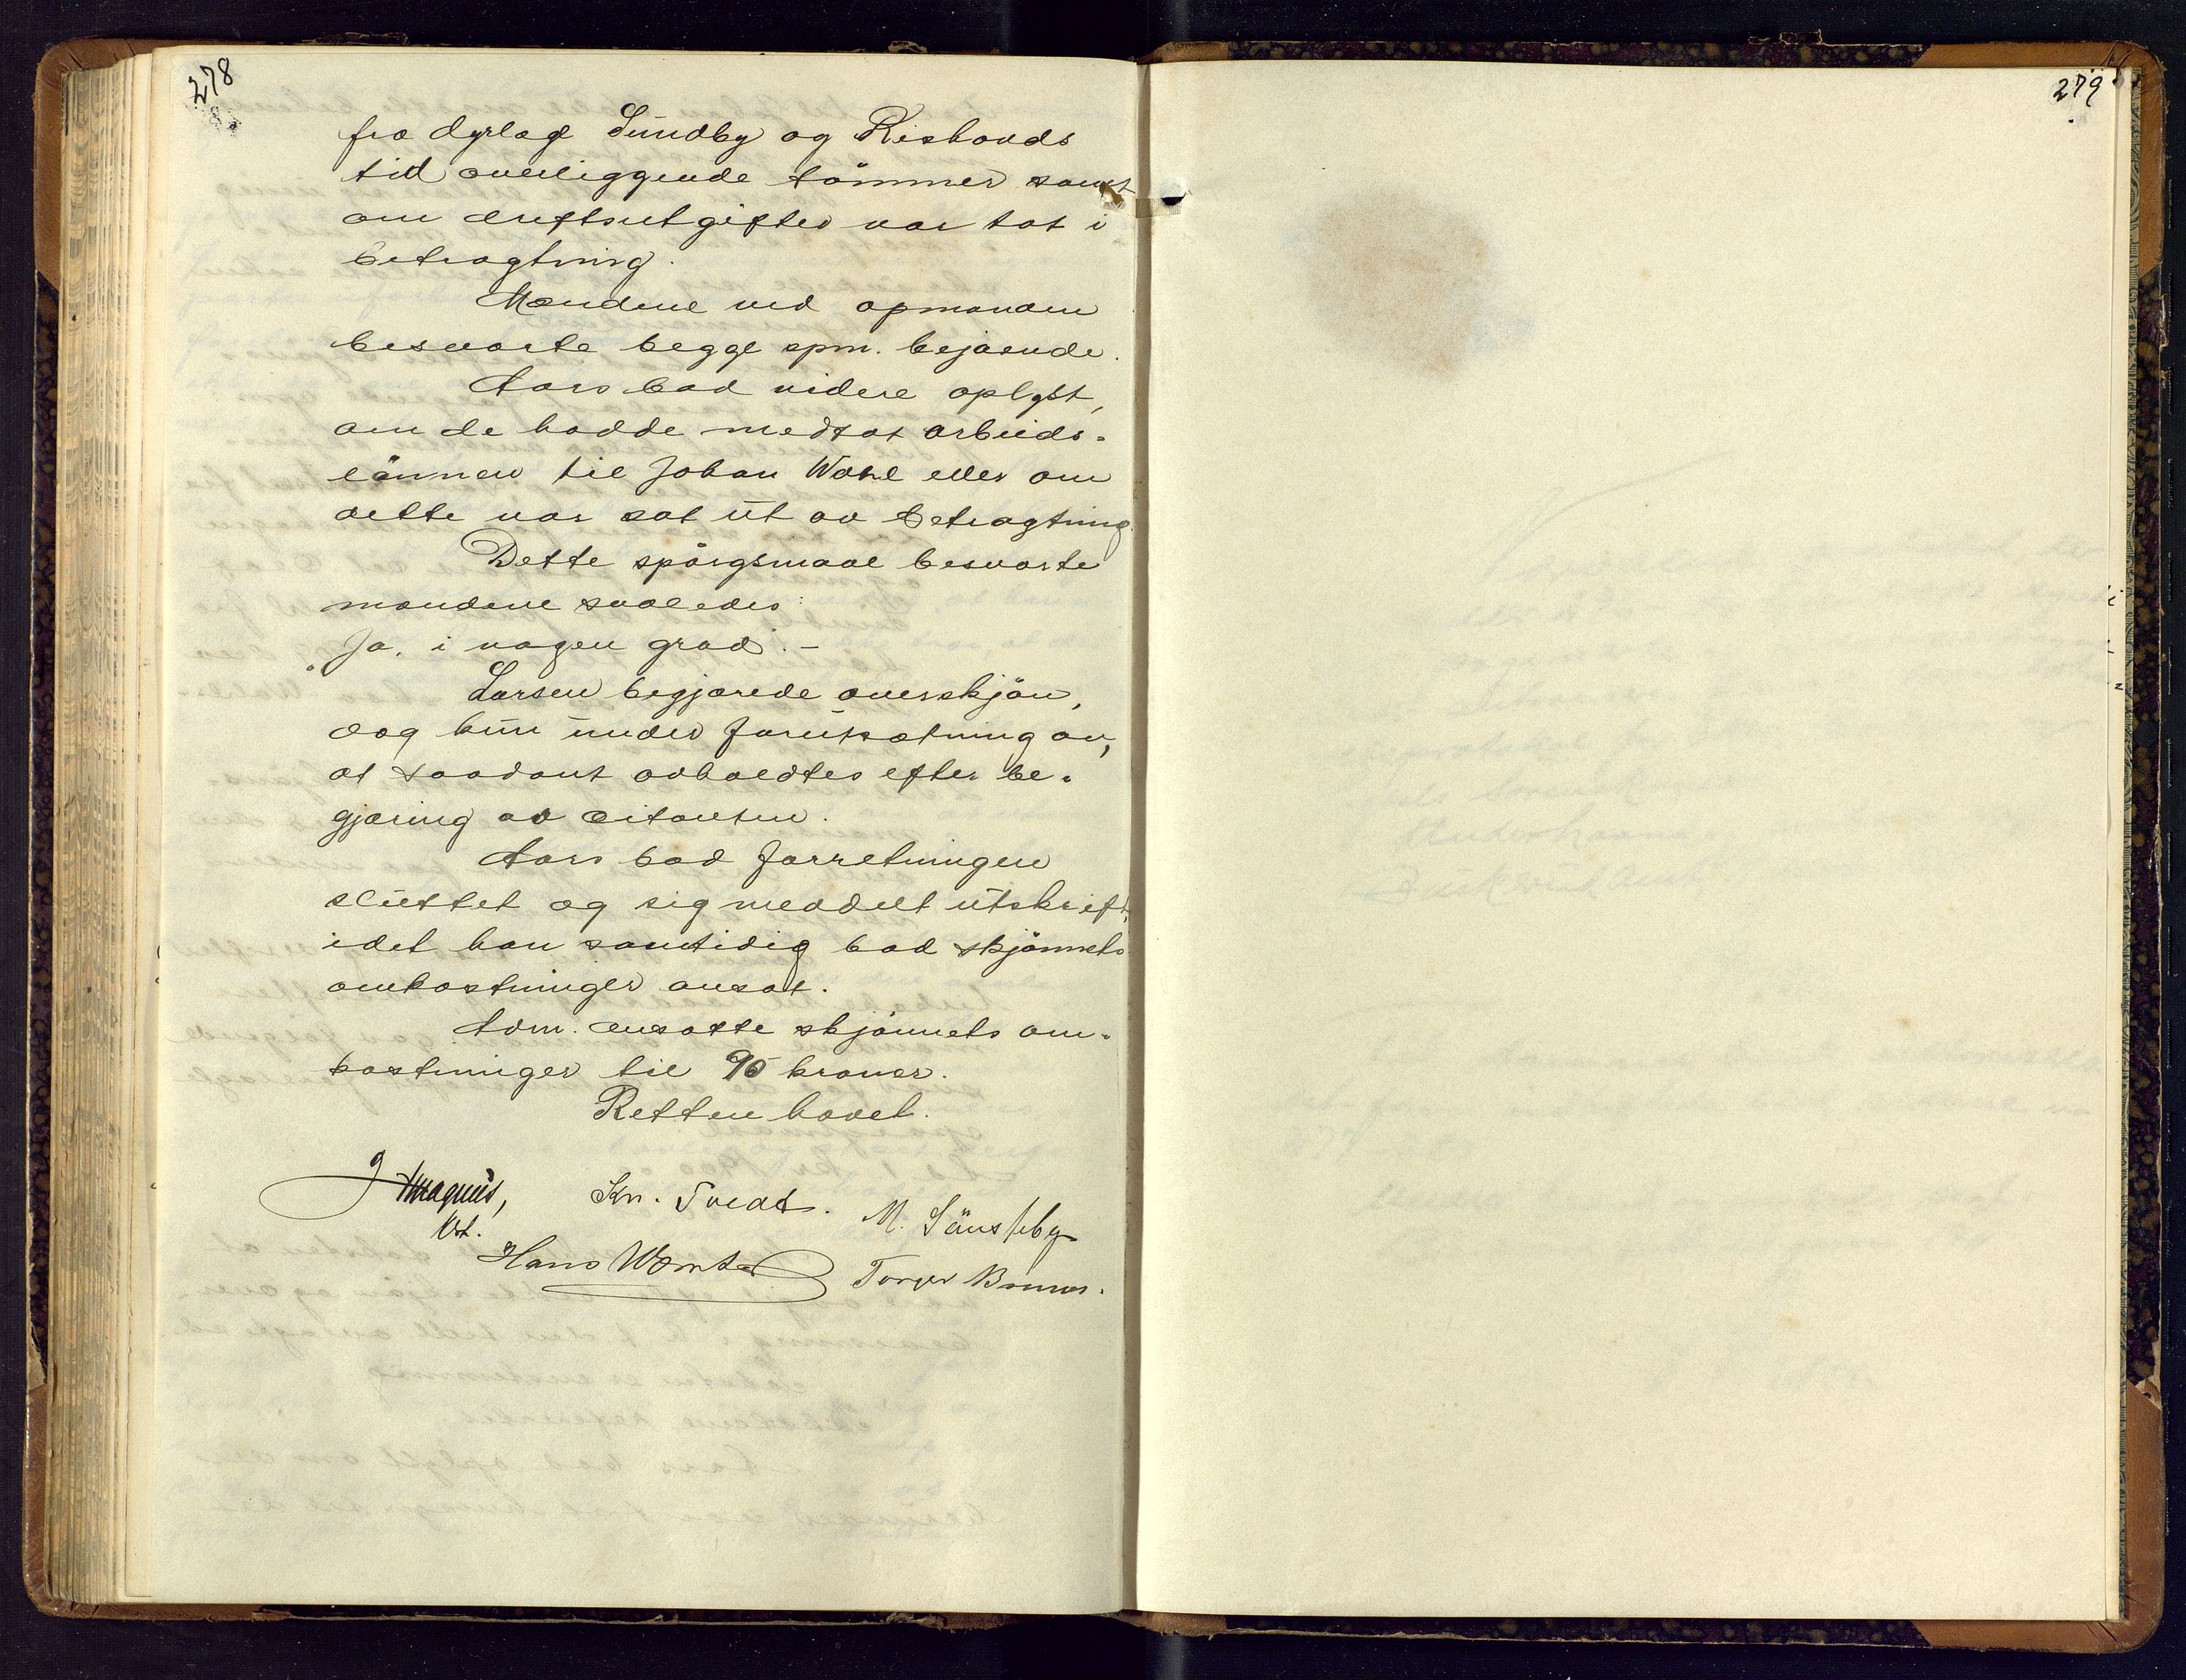 278
fra dyrlæge Sundby og Riskonds
tid overliggende tömmer samt
om driftsutgifter var tat i
betragtning.
Mændene ved opmanden
besvarte begge spm. bejaende.
Aars bad videre oplyst,
om de hadde medtat arbeids-
lönnen til Johan Wahl eller om
dette var sat ut av betragtning.
Dette spörgsmaal besvarte
mændene saaledes:
"Ja, i nogen grad". -
Larsen begjærede overskjön,
dog kun under forutsætning av,
at saadant avholdtes efter be-
gjæring av citanten.
Aars bad forretningen
sluttet og sig meddelt utskrift,
idet han samtidig bad skjönnets
omkostninger ansat.
Adm. ansatte skjönnets om-
kostninger til 90 kroner.
Retten hævet.
J Magnus, Kn. Tvedt. M. Sänsteby
Kst.
Hans Wornt Torger Brunes.
279